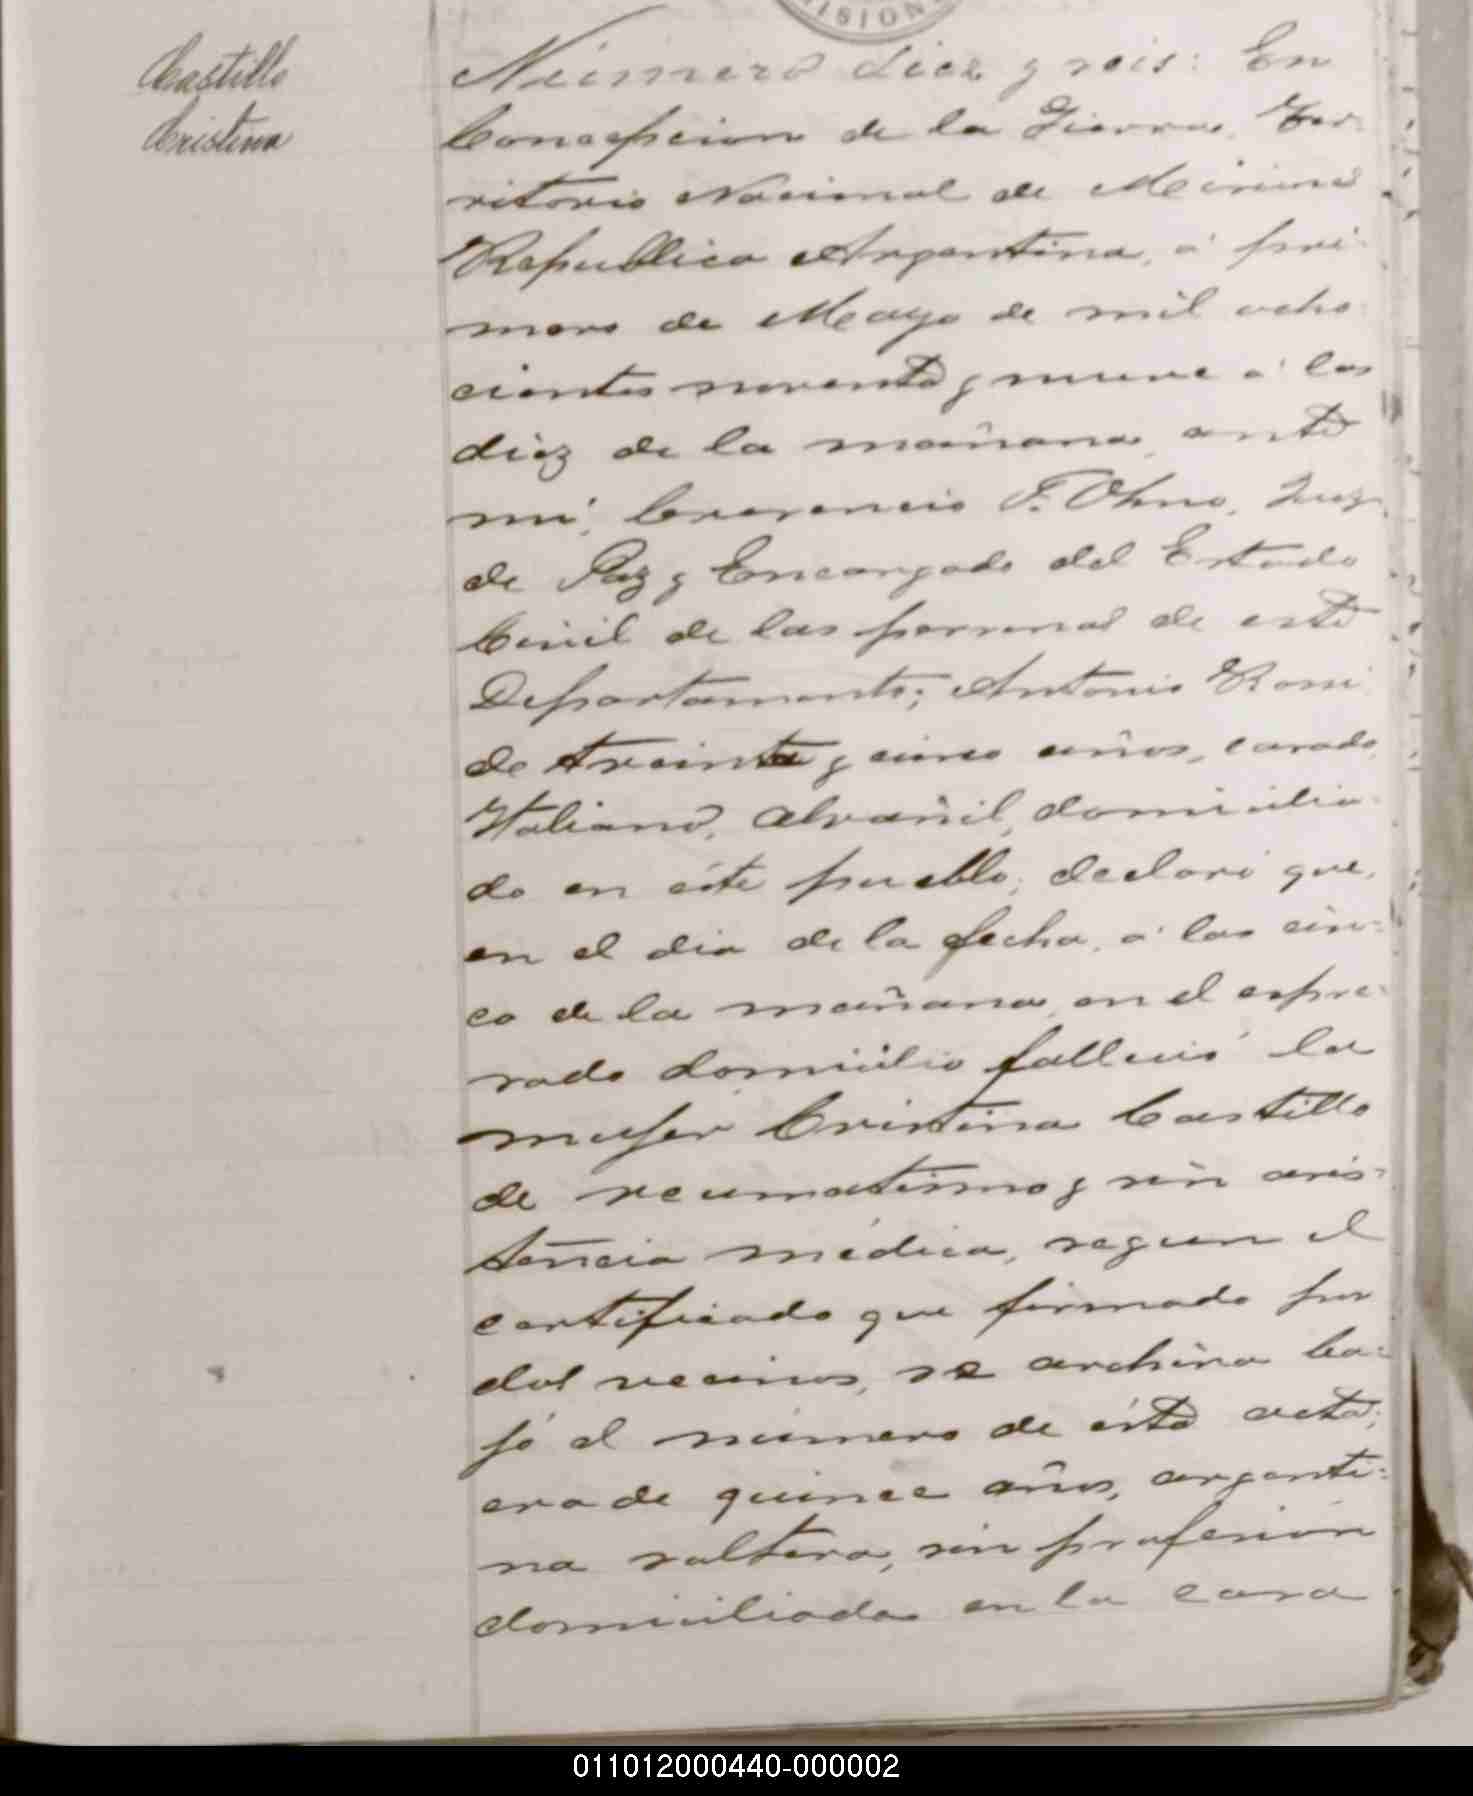 MISION
Castillo
Cristina
Número diez y seis: En
Concepcion de la Sierra, Ter-
ritorio Nacional de Misiones
Republica Argentina, á pri-
mero de Mayo de mil ocho-
cientos noventa y nueve á las
diez de la mañana, ante
mi, F. Juez
de Paz y Encargado del Estado
Civil de las personas de este
Departamento; Antonio
de treinta y cinco años, casado,
Italiano, alvañil, domicilia-
do en éste pueblo; declaró que,
en el dia de la fecha, á las cin-
co de la mañana, en el espre-
sado domicilio falleció la
mujer Cristina Castillo
de reumatismo y sin asis-
tencia médica, segun el
certificado que firmado por
dos vecinos, se archiva ba-
jó el número de ésta acta;
era de quince años, argenti-
na soltera, sin profesión
domiciliada en la casa
011012000440-000002